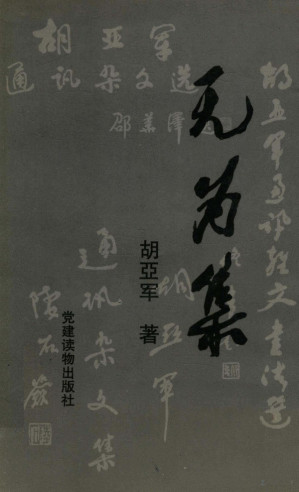 无为集
胡亞军 著
党建读物出版社
胡亚军
通讯杂文选
胡亚军通讯杂文书法选
胡亚军
通讯杂文集